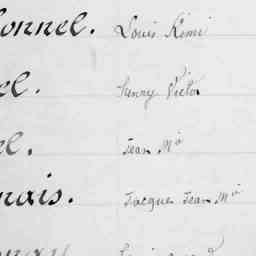 onnel. Louis Rémi
el. Henry Victor
el. Jean Mie
nais. Jacques Jean Mie